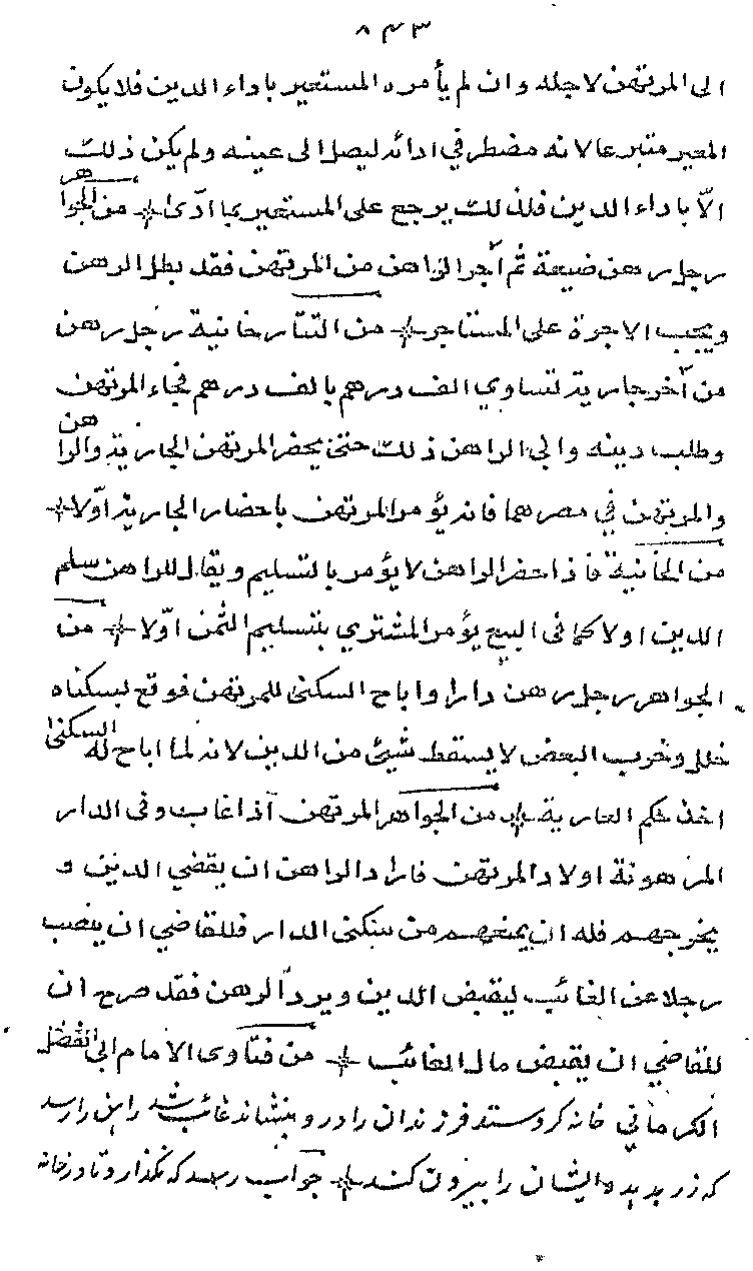 ٨٤٣
الى المرتهن لاجله وان لم يأمره المستعير باداء الدين فلا يكون
المعير متبرعا لانه مضطر في ادائه ليصل الى عينه ولم يكن ذلك
الّا باداء الدين فلذلك يرجع على المستعير بما ادّى من الجواهر
رجل رهن ضيعة ثم آجر الراهن من المرتهن فقد بطل الرهن
ويجب الاجرة على المستاجر من التتارخانية رجل رهن
من آخر جارية تساوي الف درهم بالف درهم فجاء المرتهن
وطلب دينه وابى الراهن ذلك حتى يحضر المرتهن الجارية والراهن
والمرتهن في مصرهما فانه يؤمر المرتهن باحضار الجارية اوّلا
من الخانية فاذا حضر الراهن لا يؤمر بالتسليم ويقال للراهن سلم
الدين اولا كما في البيع يؤمر المشتري بتسليم الثمن اوّلا من
الجواهر رجل رهن دارا واباح السكنى للمرتهن فوقع بسكناه
خلل وخرب البعض لا يسقط شيئ من الدين لانه لما اباح له السكنى
اخذ حكم العارية من الجواهر المرتهن اذا غاب وفى الدار
المرهونة اولاد المرتهن فاراد الراهن ان يقضي الدين و
يخرجهم فله ان يمنعهم من سكنى الدار فللقاضي ان ينصب
رجلا عن الغائب ليقبض الدين ويردّ الرهن فقد صرح ان
للقاضي ان يقبض مال الغائب من فتاوى الامام ابى الفضل
الكرماني خانه كروستد فرزندان را درو بنشاند غائب شد راهن را رسد
كه زر بدهد ايشان را بيرون كند جواب رسد كه نكذارد تا در خانه